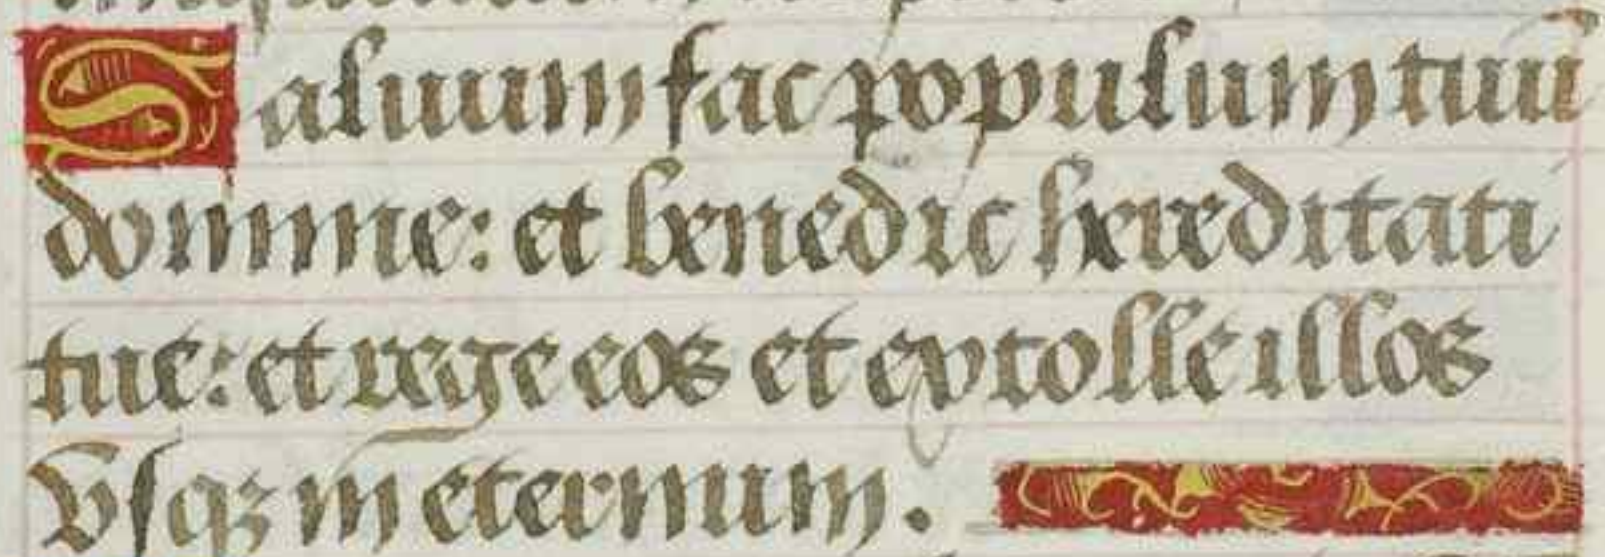 Saluum fac populum tuu
domine: et benedic hereditati
tue: et rege eos et extolle illos
vsqz in eternum.